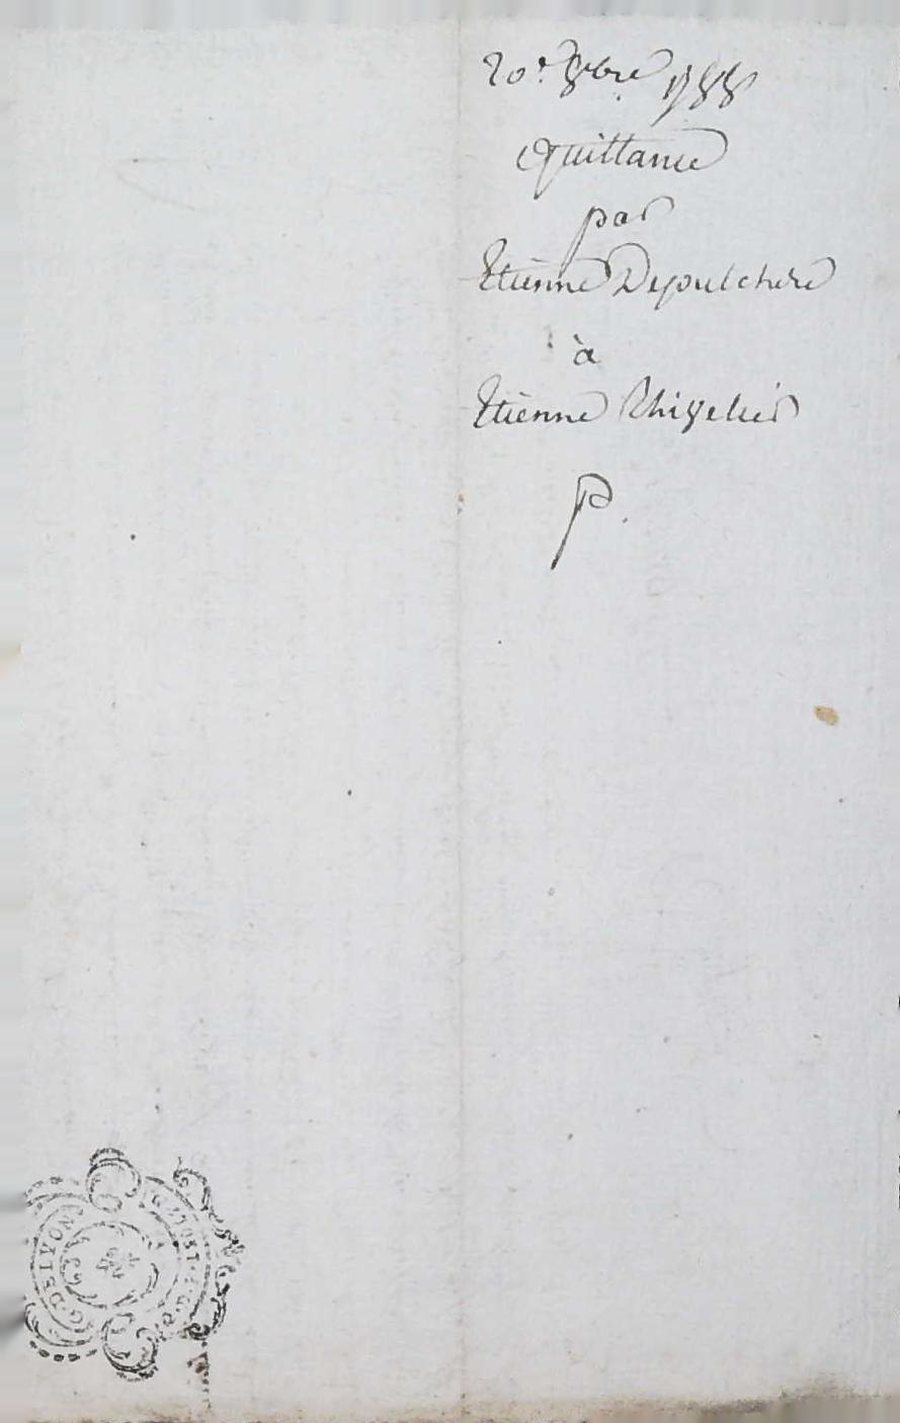 20e. 8bre 1788
Quittance
par
Etienne Depulchere
à
Etienne
P.
G. DE LYON